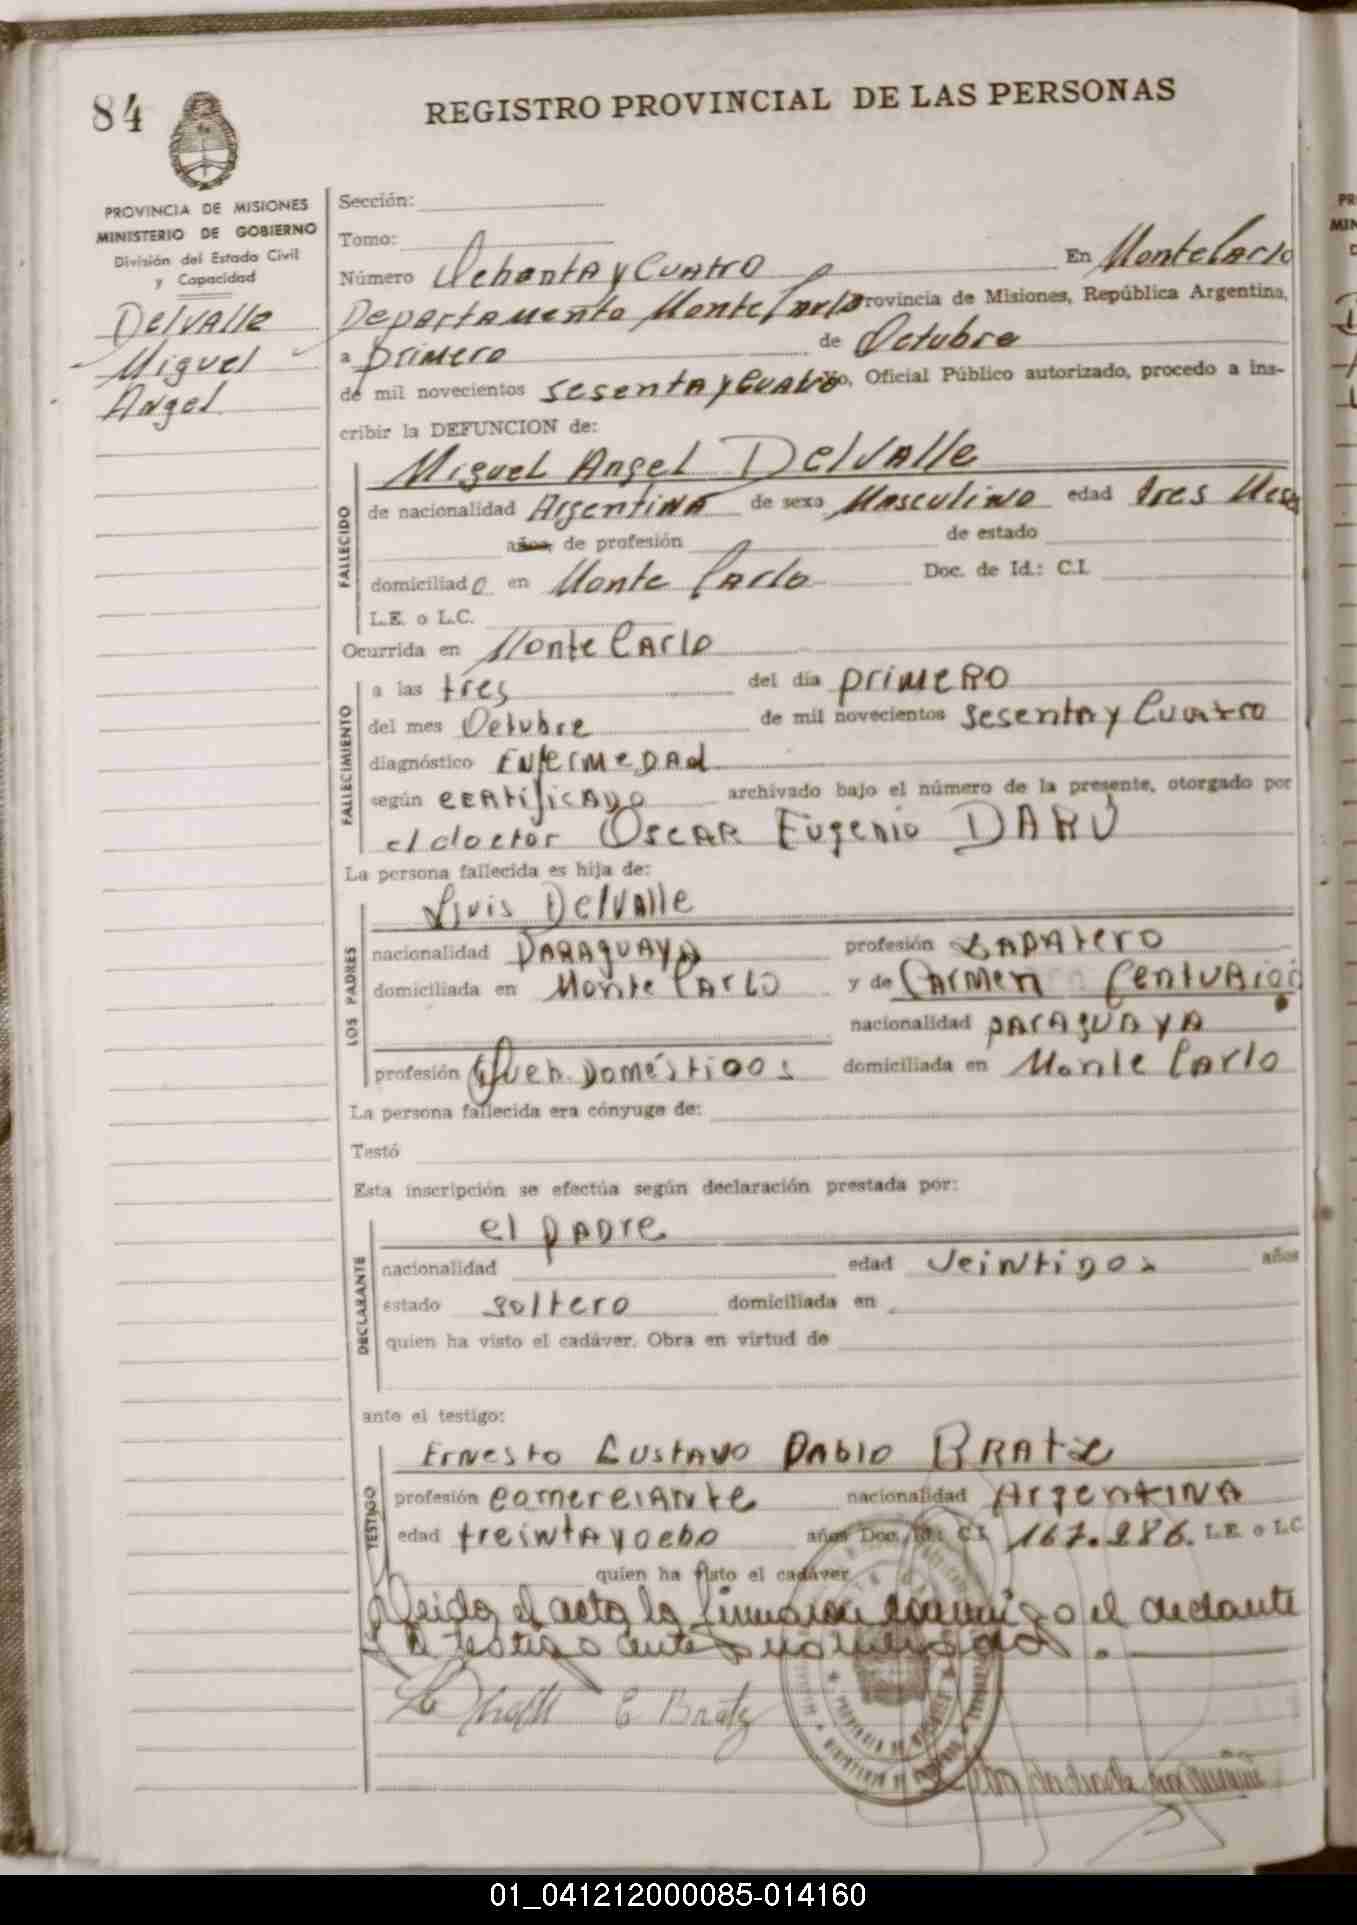 84
REGISTRO PROVINCIAL DE LAS PERSONAS
PROVINCIA DE MISIONES
MINISTERIO DE GOBIERNO
División del Estado Civil
y Capacidad
Delvalle
Miguel
Angel
Sección:
Tomo:
Número Ochenta y Cuatro En Monte Carlo
Departamento Monte Carlo Provincia de Misiones, República Argentina,
a primero de Octubre
de mil novecientos sesenta y Cuatro Yo, Oficial Público autorizado, procedo a ins-
cribir la DEFUNCION de:
FALLECIDO
Miguel Angel Delvalle
de nacionalidad Argentina de sexo Masculino edad tres Meses
años, de profesión de estado
domiciliado en Monte Carlo Doc. de Id.: C.I.
L.E. o L.C.
Ocurrida en Monte Carlo
FALLECIMIENTO
a las tres del día primero
del mes Octubre de mil novecientos sesenta y Cuatro
diagnóstico Enfermedad
según certificado archivado bajo el número de la presente, otorgado por
el doctor Oscar Eugenio DARÚ
La persona fallecida es hija de:
LOS PADRES
Luis Delvalle
nacionalidad Paraguaya profesión Zapatero
domiciliada en Monte Carlo y de Carmen Centurión
nacionalidad paraguaya
profesión Queh. Domésticos domiciliada en Monte Carlo
La persona fallecida era cónyuge de:
Testó
Esta inscripción se efectúa según declaración prestada por:
DECLARANTE
el padre
nacionalidad edad veintidos años
estado soltero domiciliada en
quien ha visto el cadáver. Obra en virtud de
ante el testigo:
TESTIGO
Ernesto Gustavo Pablo Bratz
profesión comerciante nacionalidad Argentina
edad treinta y ocho años Doc. Id.: C.I. 167.286. L.E. o L.C.
quien ha visto el cadáver
Leida el acta la firmaron conmigo el declarante
testigo antes nombrado.
E Bratz
01_041212000085-014160